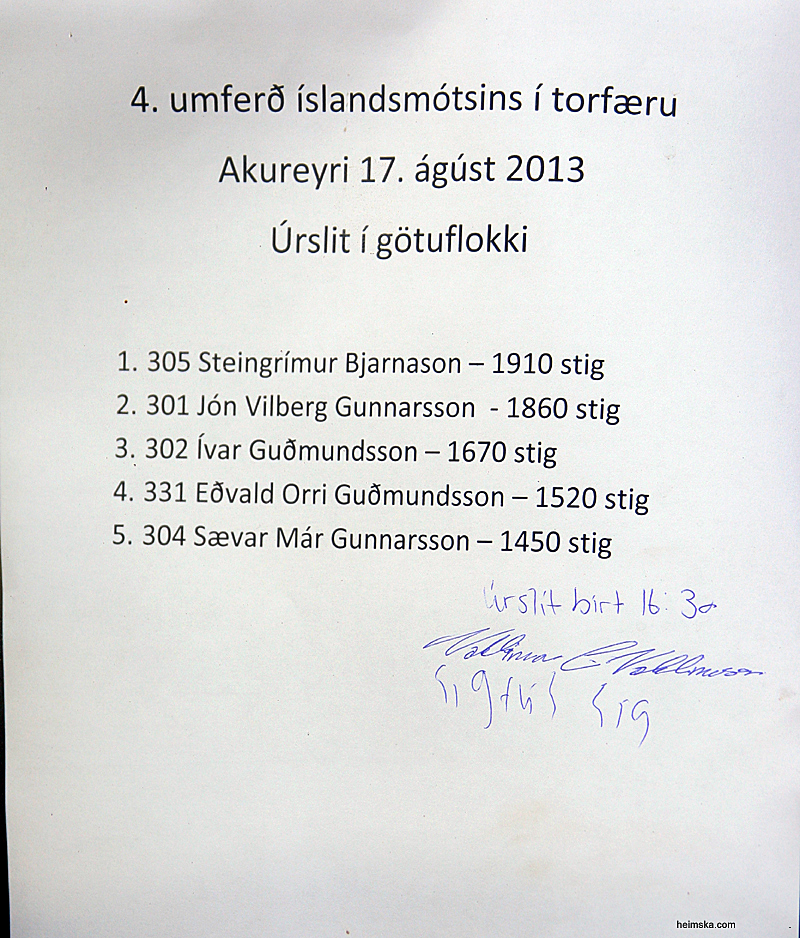 4. umferð íslandsmótsins í torfæru
Akureyri 17. ágúst 2013
Úrslit í götuflokki
1. 305 Steingrímur Bjarnason – 1910 stig
2. 301 Jón Vilberg Gunnarsson  - 1860 stig
3. 302 Ívar Guðmundsson – 1670 stig
4. 331 Eðvald Orri Guðmundsson – 1520 stig
5. 304 Sævar Már Gunnarsson – 1450 stig
Úrslit birt 16:30
Sigfús Sig
heimska.com